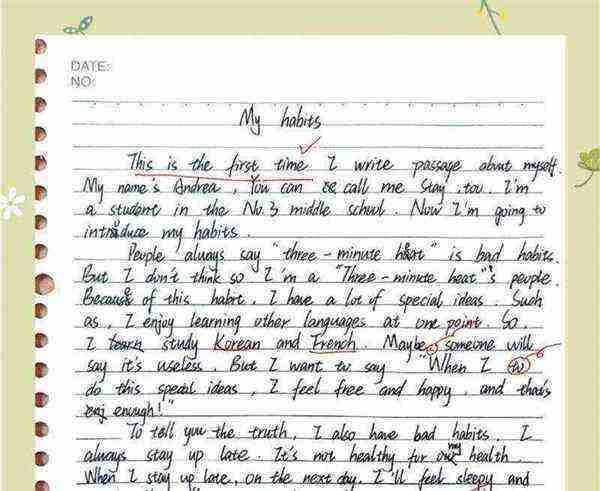 DATE:
NO:
My habits
This is the first time I write passage about myself.
My name's Andrea, You can call me Stay, too. I'm
a student in the No.3 middle school. Now I'm going to
introduce my habits.
People always say "three-minute heat" is bad habits.
But I don't think so I'm a "Three-minute heat"'s people.
Because of this habit, I have a lot of special ideas. Such
as, I enjoy learning other languages at one point. So,
I study Korean and French. Maybe, someone will
say it's useless. But I want to say "When I to
do this special ideas, I feel free and happy, and that's
enough!"
To tell you the truth, I also have bad habits. I
always stay up late. It's not healthy for my health.
When I stay up late, on the next day, I'll feel sleepy and